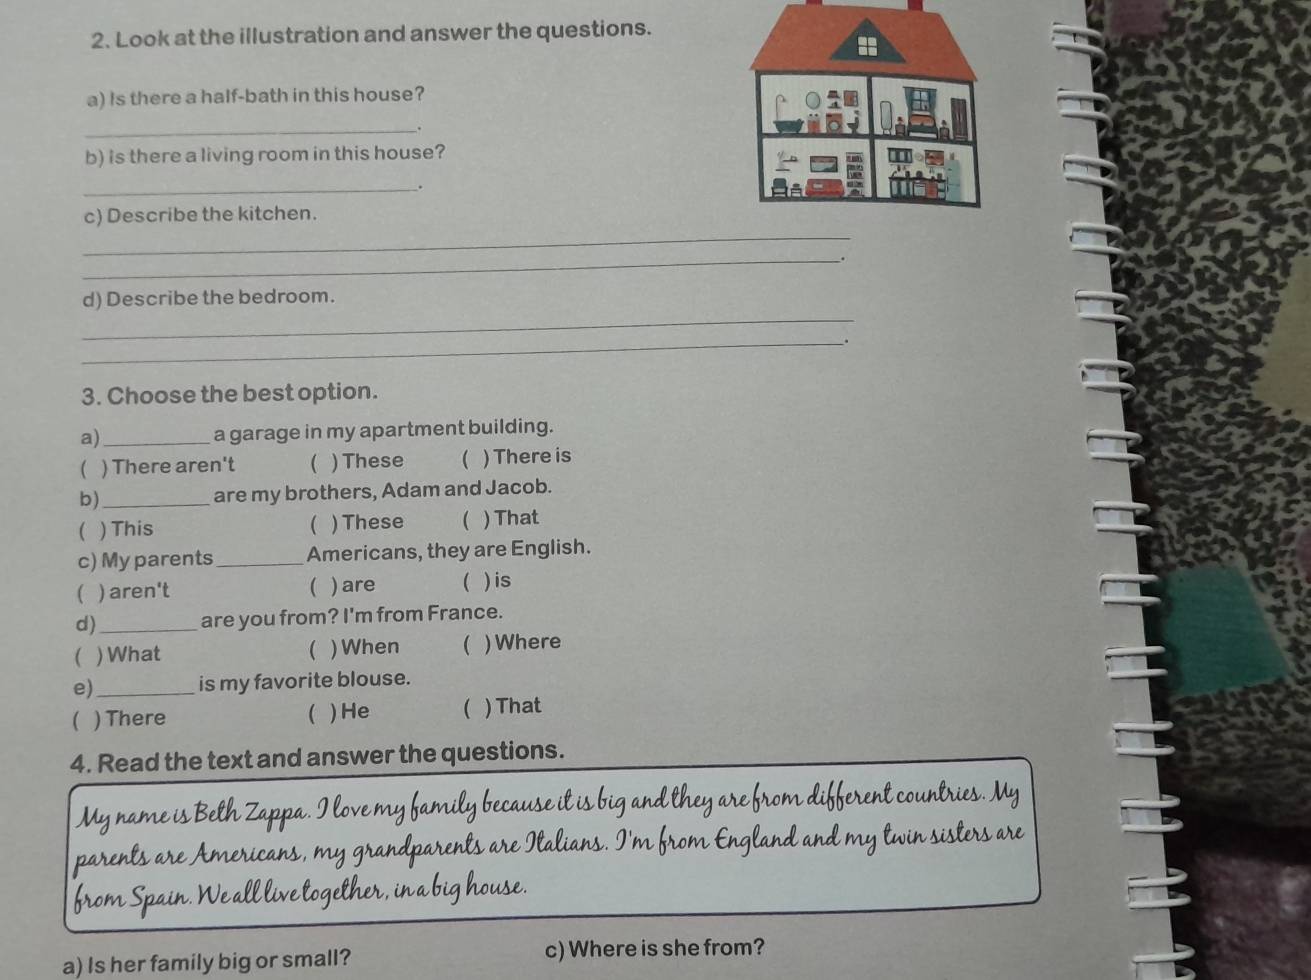 2. Look at the illustration and answer the questions.
a) Is there a half-bath in this house?
____________________.
b) is there a living room in this house?
____________________.
c) Describe the kitchen.
____________________
____________________.
d) Describe the bedroom.
____________________
____________________.
3. Choose the best option.
a)_________ a garage in my apartment building.
( ) There aren't ( ) These ( ) There is
b)_________ are my brothers, Adam and Jacob.
( ) This ( ) These ( ) That
c) My parents _______ Americans, they are English.
( ) aren't ( ) are ( ) is
d)________ are you from? I'm from France.
( ) What ( ) When ( ) Where
e)________ is my favorite blouse.
( ) There ( ) He ( ) That
4. Read the text and answer the questions.
My name is Beth Zappa. I love my family because it is big and they are from different countries. My
parents are Americans, my grandparents are Italians. I'm from England and my twin sisters are
from Spain. We all live together, in a big house.
a) Is her family big or small? c) Where is she from?